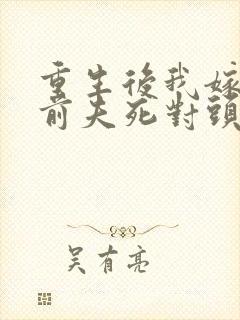 重生後我嫁
前夫死對頭
吴有亮